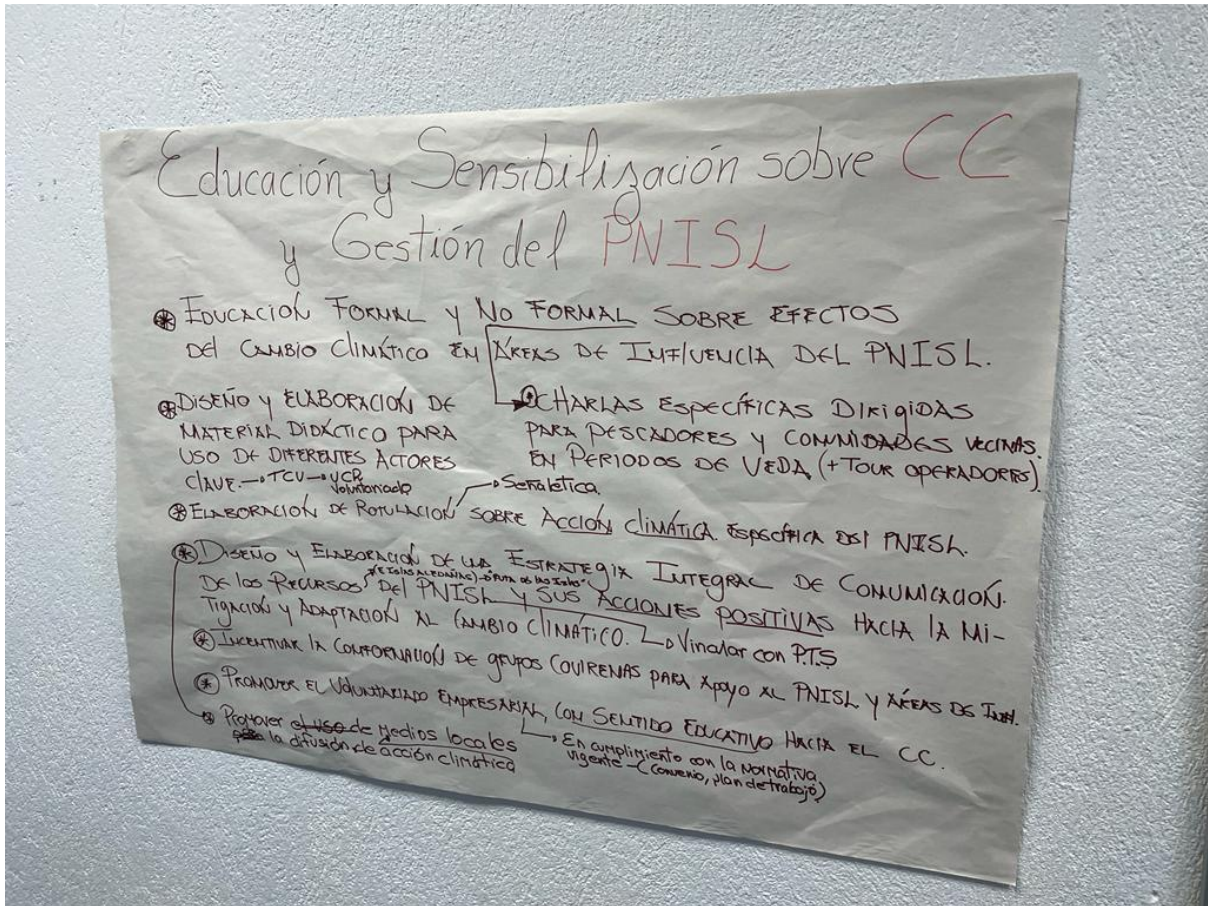 Educación y Sensibilización sobre CC
y Gestión del PNISL
EDUCACIÓN FORMAL Y NO FORMAL SOBRE EFECTOS
DEL CAMBIO CLIMÁTICO EN ÁREAS DE INFLUENCIA DEL PNISL.
DISEÑO Y ELABORACIÓN DE
MATERIAL DIDÁCTICO PARA
USO DE DIFERENTES ACTORES
CLAVE. → TCU → UCR
Voluntariado
CHARLAS ESPECÍFICAS DIRIGIDAS
PARA PESCADORES Y COMUNIDADES VECINAS.
EN PERIODOS DE VEDA (+ TOUR OPERADORES).
→ Señalética.
ELABORACIÓN DE ROTULACIÓN SOBRE ACCIÓN CLIMÁTICA ESPECÍFICA DEL PNISL.
DISEÑO Y ELABORACIÓN DE UNA ESTRATEGIA INTEGRAL DE COMUNICACIÓN.
(E ISLAS ALEDAÑAS) → "RUTA DE LAS ISLAS"
DE LOS RECURSOS DEL PNISL Y SUS ACCIONES POSITIVAS HACIA LA MI-
TIGACIÓN Y ADAPTACIÓN AL CAMBIO CLIMÁTICO. → Vincular con P.T.S
INCENTIVAR LA CONFORMACIÓN DE GRUPOS COVIRENAS PARA APOYO AL PNISL Y ÁREAS DE
PROMOVER EL VOLUNTARIADO EMPRESARIAL, CON SENTIDO EDUCATIVO HACIA EL CC.
→ En cumplimiento con la Normativa
vigente - (Convenio, plan de trabajo)
Promover el uso de Medios locales
la difusión de acción climática